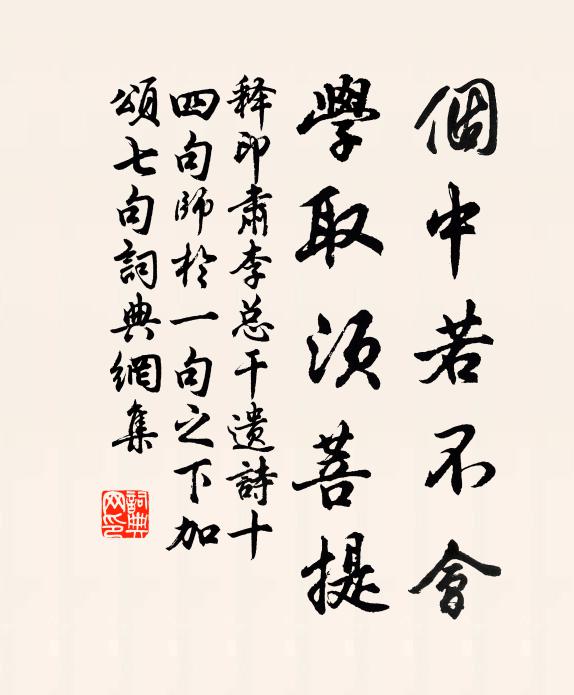 個中若不會
學取須菩提
释印肃李总干遗詩十
四句師於一句之下加
頌七句詞典網集
詞典
网印